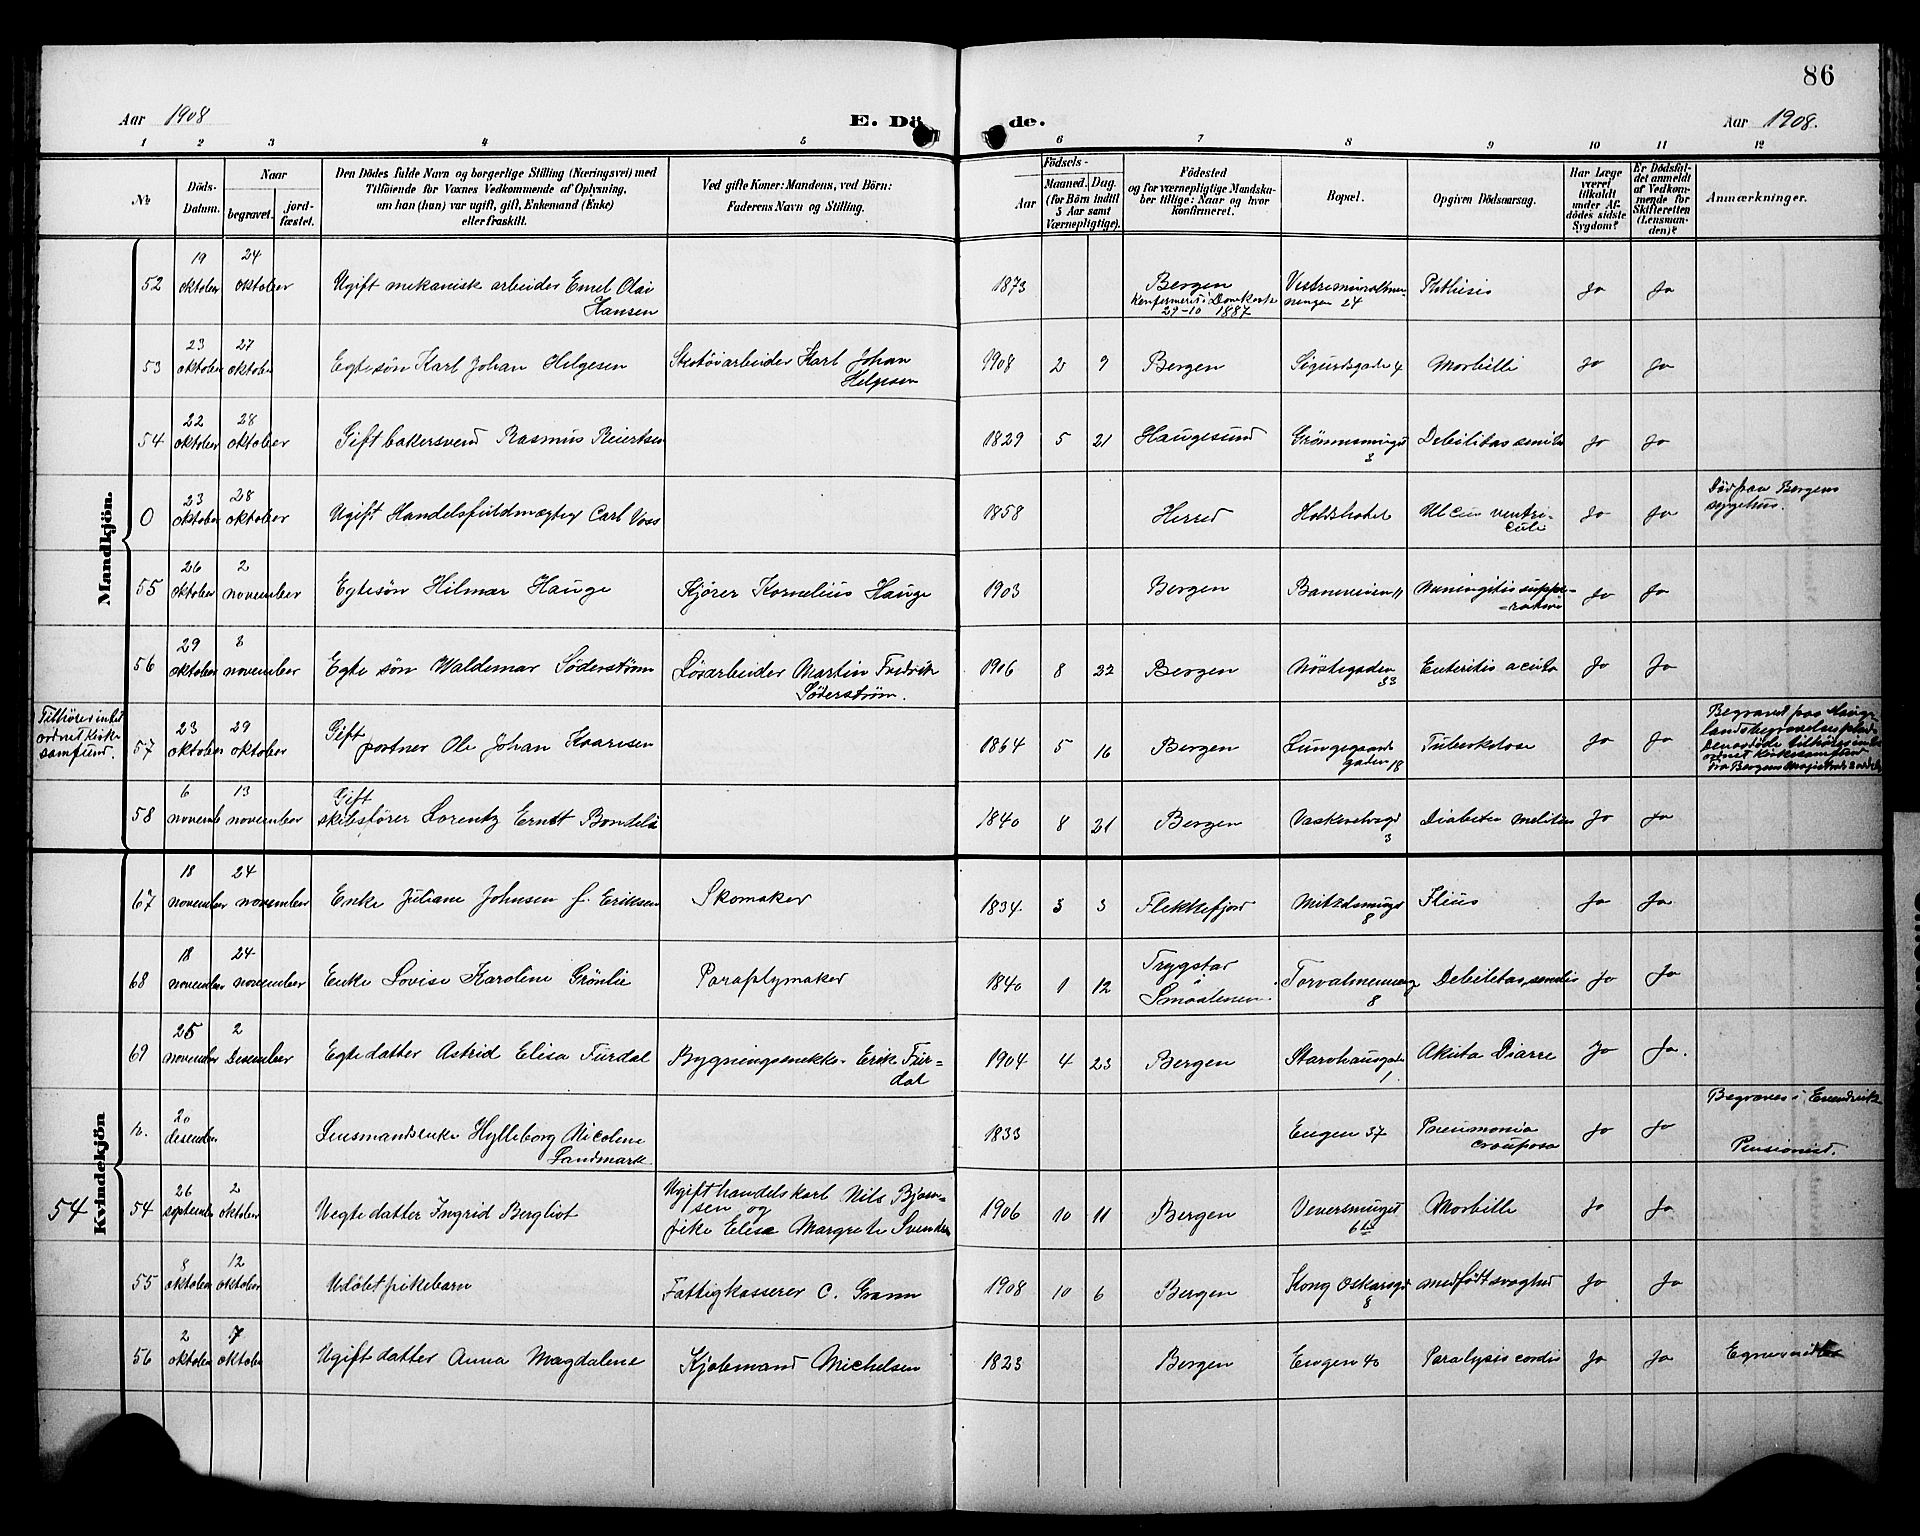 86
Aar 1908
E. Dö de.
Aar 1908.
1 2 3 4 5 6 7 8 9 10 11 12
No
Döds-
Datum.
Naar
begravet.
jord-
fæstet.
Den Dödes fulde Navn og borgerlige Stilling (Næringsvei) med
Tilföiende for Voxnes Vedkommende af Oplysning,
om han (hun) var ugift, gift, Enkemand (Enke)
eller fraskilt.
Ved gifte Koner: Mandens, ved Börn:
Faderens Navn og Stilling.
Födsels-
Aar
Maaned. Dag.
(for Börn indtil
5 Aar samt
Værnepligtige).
Födested
og for værnepligtige Mandska-
ber tillige: Naar og hvor
Konfirmeret.
Bopæl.
Opgiven Dödsaarsag.
Har Læge
været
tilkaldt
under Af-
dödes sidste
Sygdom?
Er Dödsfal-
det anmeldt
af Vedkom-
mende for
Skifteretten
(Lensman-
den)?
Anmærkninger.
Mandkjön.
52 19 oktober 24 oktober Ugift mekanisk arbeider Emil Olai
Hansen
1873 Bergen
29-10 1887
24 Phthisis Ja Ja
53 23 oktober 27 oktober Egtesøn Karl Johan Helgesen Skotøiarbeider Karl Johan
Helgesen
1908 2 9 Bergen Sigurdsgade 4 Morbilli Ja Ja
54 22 oktober 28 oktober Gift bakersvend Rasmus Reiertsen
1829 5 21 Haugesund Debilitas senilis Ja Ja
0 23 oktober 28 oktober Ugift Handelsfuldmægtig Carl Voss
1858 Herred Holdshotel Ulcus ventri-
culi Ja Ja Død paa Bergens
sygehus.
55 26 oktober 2 november Egtesøn Hilmar Hauge Kjører Kornelius Hauge
1903 Bergen Baneveien 11 Ja Ja
56 29 oktober 8 november Egte søn Waldemar Søderstrøm Løsarbeider Martin Fredrik
Søderstrøm.
1906 8 22 Bergen Nøstegaden
33 Enteritis acuta Ja Ja
Tilhører intet
ordnet kirke
samfund.
57 23 oktober 29 oktober Gift
portner Ole Johan Kaarsen
1864 5 16 Bergen Lungegaards
gaden 18 Tuberkulose Ja Ja Begravet paa Hauge
landsbegravelsesplads
Den afdøde tilhører intet
ordnet kirkesamfund
58 6 novembe 13 november Gift
skibsfører Lorentz Erndt
1840 8 21 Bergen
3 Diabetes melitus Ja Ja
Kvindekjön
67 18 november 24 november Enke Juliane Johnsen f. Eriksen Skomaker
1834 3 3 Flekkefjord
8 Ileus Ja Ja
68 18 november 24 november Enke Lovise Karoline Grønlie Paraplymaker
1840 1 12 Trygstar
Smaalenene
Torvalmenning
8 Debilitas senilis Ja Ja
69 25 november 2 Desember Egte datter Astrid Elisa Furdal Bygningssnekker Erik Fur-
dal
1904 4 23 Bergen
1 Akuta Diarre Ja Ja.
20 desember Lensmandsenke Hylleborg Nicoline
Landmark.
1833 Engen 37 Pneumonia
crouposa Ja Ja Begraves i Evendvik
Pensionist.
54
54 26 september 2 oktober Uegte datter Ingrid Bergliot Ugift handelskarl Nils Bjørn-
sen og
pike Elise Margrete Svendsen
1906 10 11 Bergen Veversmuget
6 Morbilli Ja Ja
55 8 oktober 12 oktober Udøbt pikebarn Fattigkasserer C. Grann
1908 10 6 Bergen Kong Oskarsgd
8 medfødt svaghed Ja Ja
56 2 oktober 7 oktober Ugift datter Anna Magdalene Kjøbmand Michelsen
1823 Bergen Engen 40 Paralysis cordis Ja Ja